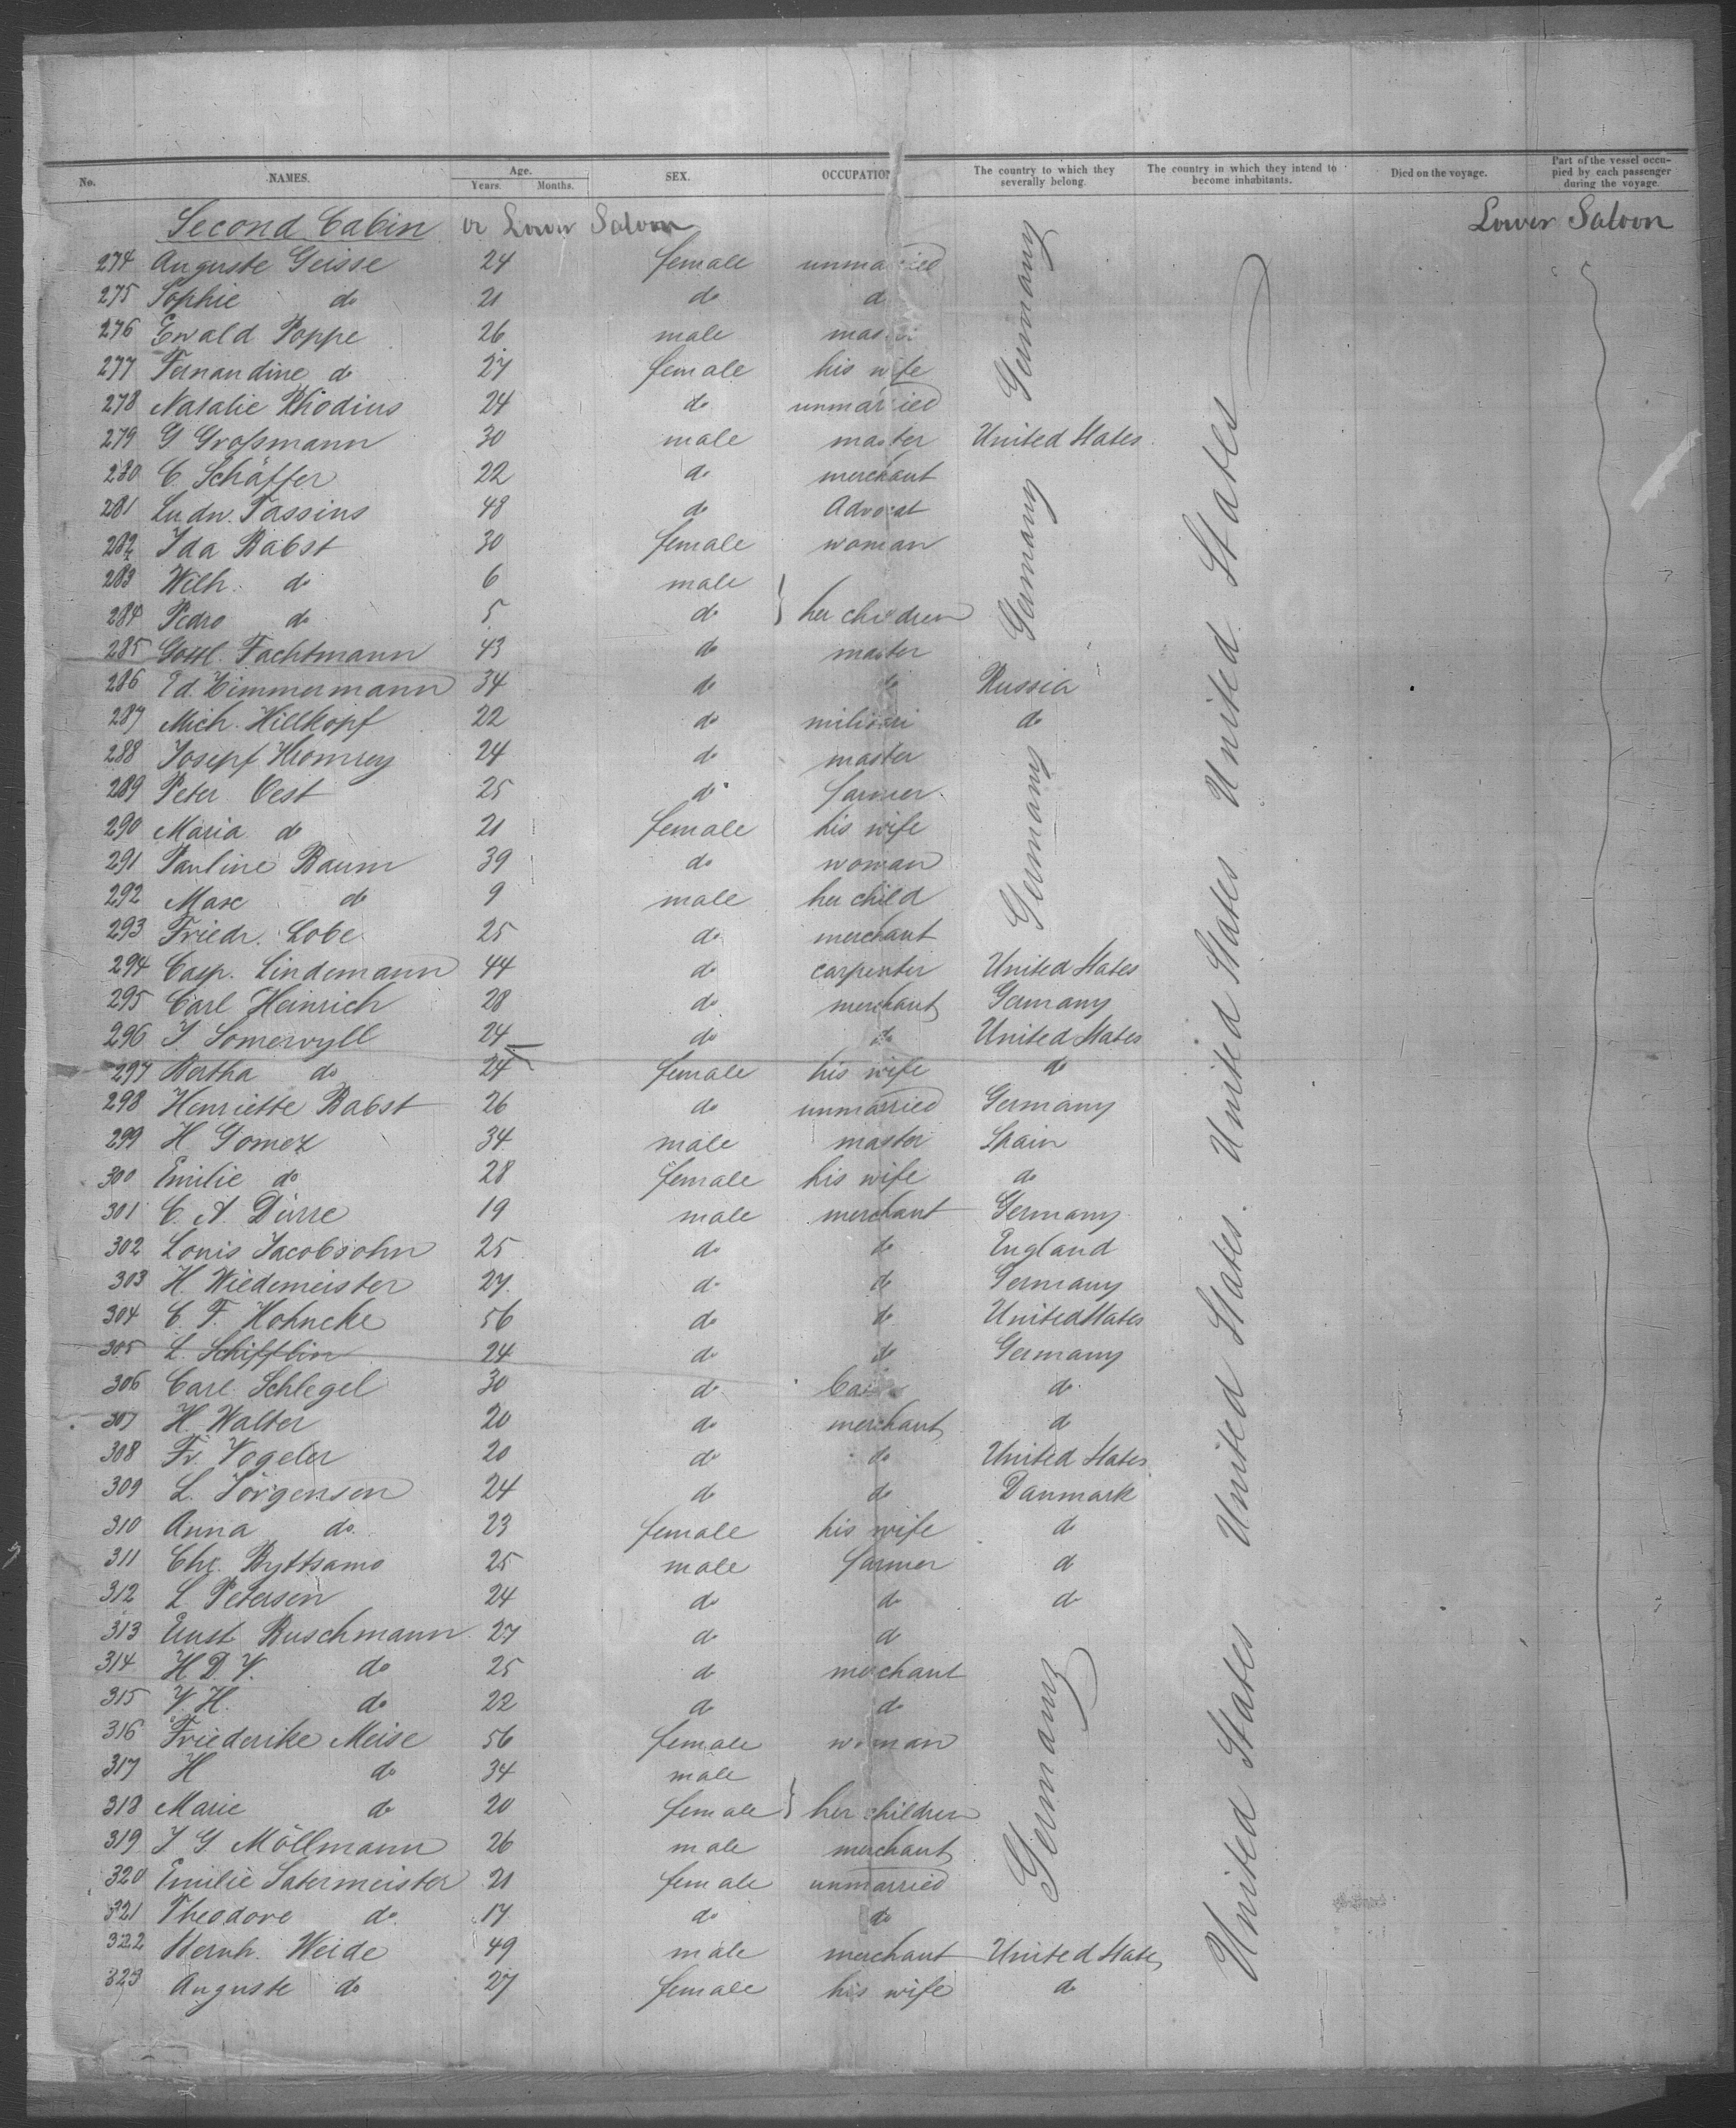 No. NAMES. Age. Years. Months. SEX. OCCUPATION The country to which they severally belong. The country in which they intend to become inhabitants. Died on the voyage. Part of the vessel occupied by each passenger during the voyage.
Second Cabin or Lower Saloon Lower Saloon
274 Auguste Geisse 24 female unmarried Germany United States
275 Sophie do 21 do d
276 Ewald Poppe 26 male
277 Fernandine do 27 female his wife
278 Natalie Rhodius 24 do unmarried
279 G Großmann 30 male master United States
280 C. Schäffer 22 do merchant Germany
281 Ludw. Tassius 48 do Advocat
282 Ida Babst 30 female woman
283 Wilh. do 6 male
284 Pedro do 5 do } her children
285 Gottl. Fachtmann 43 do master
286 Ed. Zimmermann 34 do do Russia
287 Mich. Hillkopf 22 do do
288 Josepf 24 do master Germany
289 Peter Oest 25 do farmer
290 Maria do 21 female his wife
291 Pauline Baum 39 do woman
292 Max do 9 male her child
293 Friedr. Lobe 25 do merchant
294 Casp. Lindemann 44 do carpenter United States
295 Carl Heinrich 28 do merchant Germany
296 J. Somerwyll 24 do do United States
297 Bertha do 24 female his wife do
298 Henriette Babst 26 do unmarried Germany
299 H Gomez 34 male master Spain
300 Emilie do 28 female his wife do
301 C. A. Dürre 19 male merchant Germany
302 Louis Jacobsohn 25 do do England
303 H. Wiedemeister 27 do do Germany
304 C. F. Hohncke 56 do do United States
305 L. Schifflin 24 do do Germany
306 Carl Schlegel 30 do do
307 H. Walter 20 do merchant do
308 Fr. Vogeler 20 do do United States
309 L. Jörgensen 24 do do Danmark
310 Anna do 23 female his wife do
311 Chr. Byttsamo 25 male farmer do
312 L Petersen 24 do do do
313 Ernst Buschmann 27 do do Germany
314 H. D. V. do 25 do merchant
315 V. H. do 22 do do
316 Friederike Meise 56 female woman
317 H do 34 male
318 Marie do 20 female } her children
319 J G Möllmann 26 male merchant
320 Emilie Satermeister 21 female unmarried
321 Theodore do 17 do do
322 Bernh. Weide 49 male merchant United States
323 Auguste do 27 female his wife do
United States
United States
United States
United States